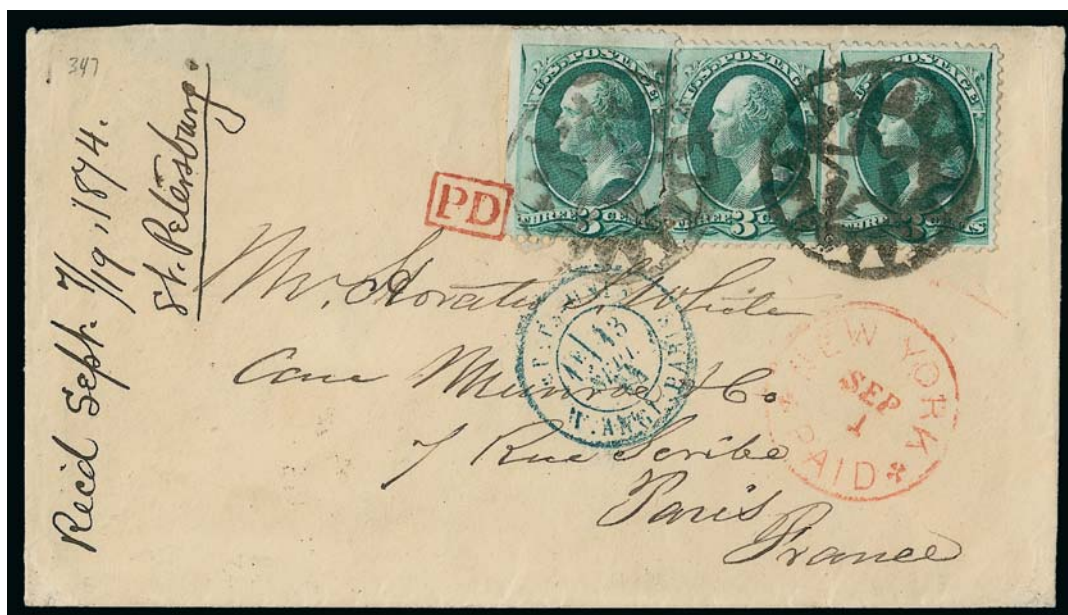 347
Recd Sept. 7/19, 1874.
St. Petersburg.
U.S. POSTAGE
THREE 3 CENTS
U.S. POSTAGE
THREE 3 CENTS
U.S. POSTAGE
THREE 3 CENTS
PD
Mr. Horatio S. White
Care Munroe & Co
7 Rue Scribe
Paris
France
13
SEPT
NEW YORK
SEP
1
PAID